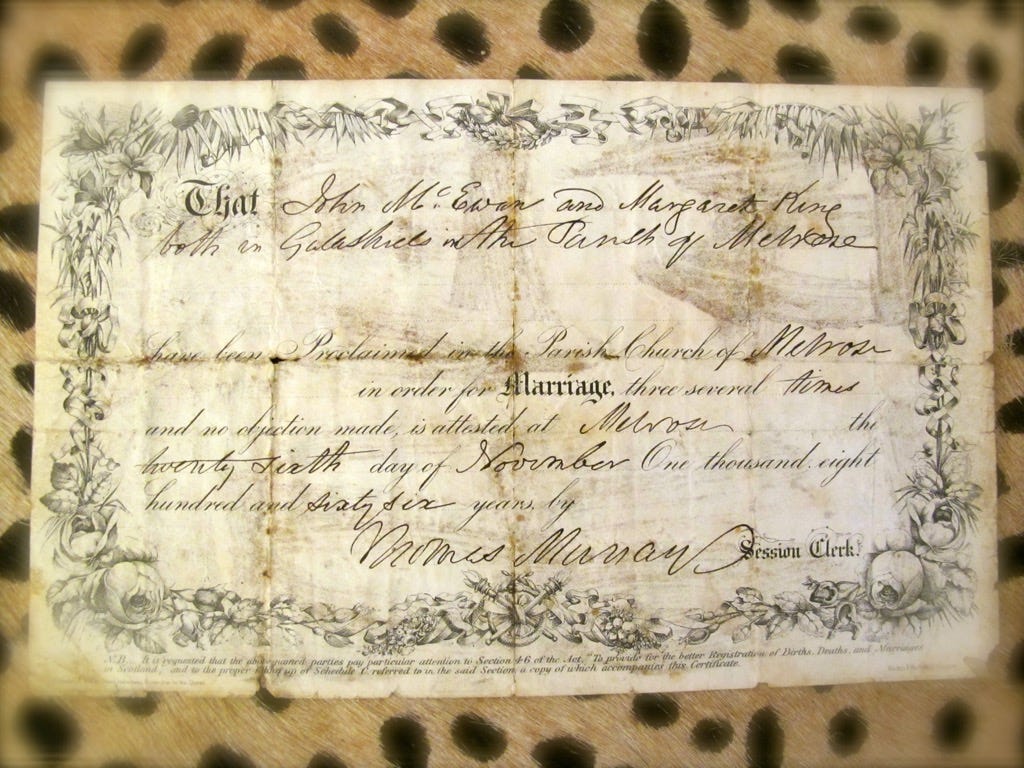 That John Mc Ewan and Margaret King
both in Galashiels in the Parish of Melrose
have been Proclaimed in the Parish Church of Melrose
in order for Marriage, three several times
and no objection made, is attested at Melrose the
twenty sixth day of November One thousand eight
hundred and sixty six years, by
Thomas Murray Session Clerk.
N.B. It is requested that the above named parties pay particular attention to Section 46 of the Act, "To provide for the better Registration of Births, Deaths, and Marriages
in Scotland, and to the proper filling up of Schedule C referred to in the said Section a copy of which accompanies this Certificate.